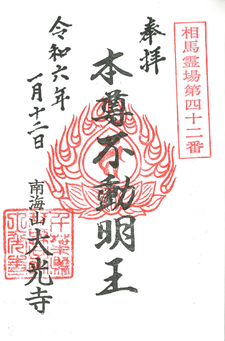 相馬霊場第四十二番
奉拝
本尊不動明王
令和六年
一月十二日
南海山大光寺